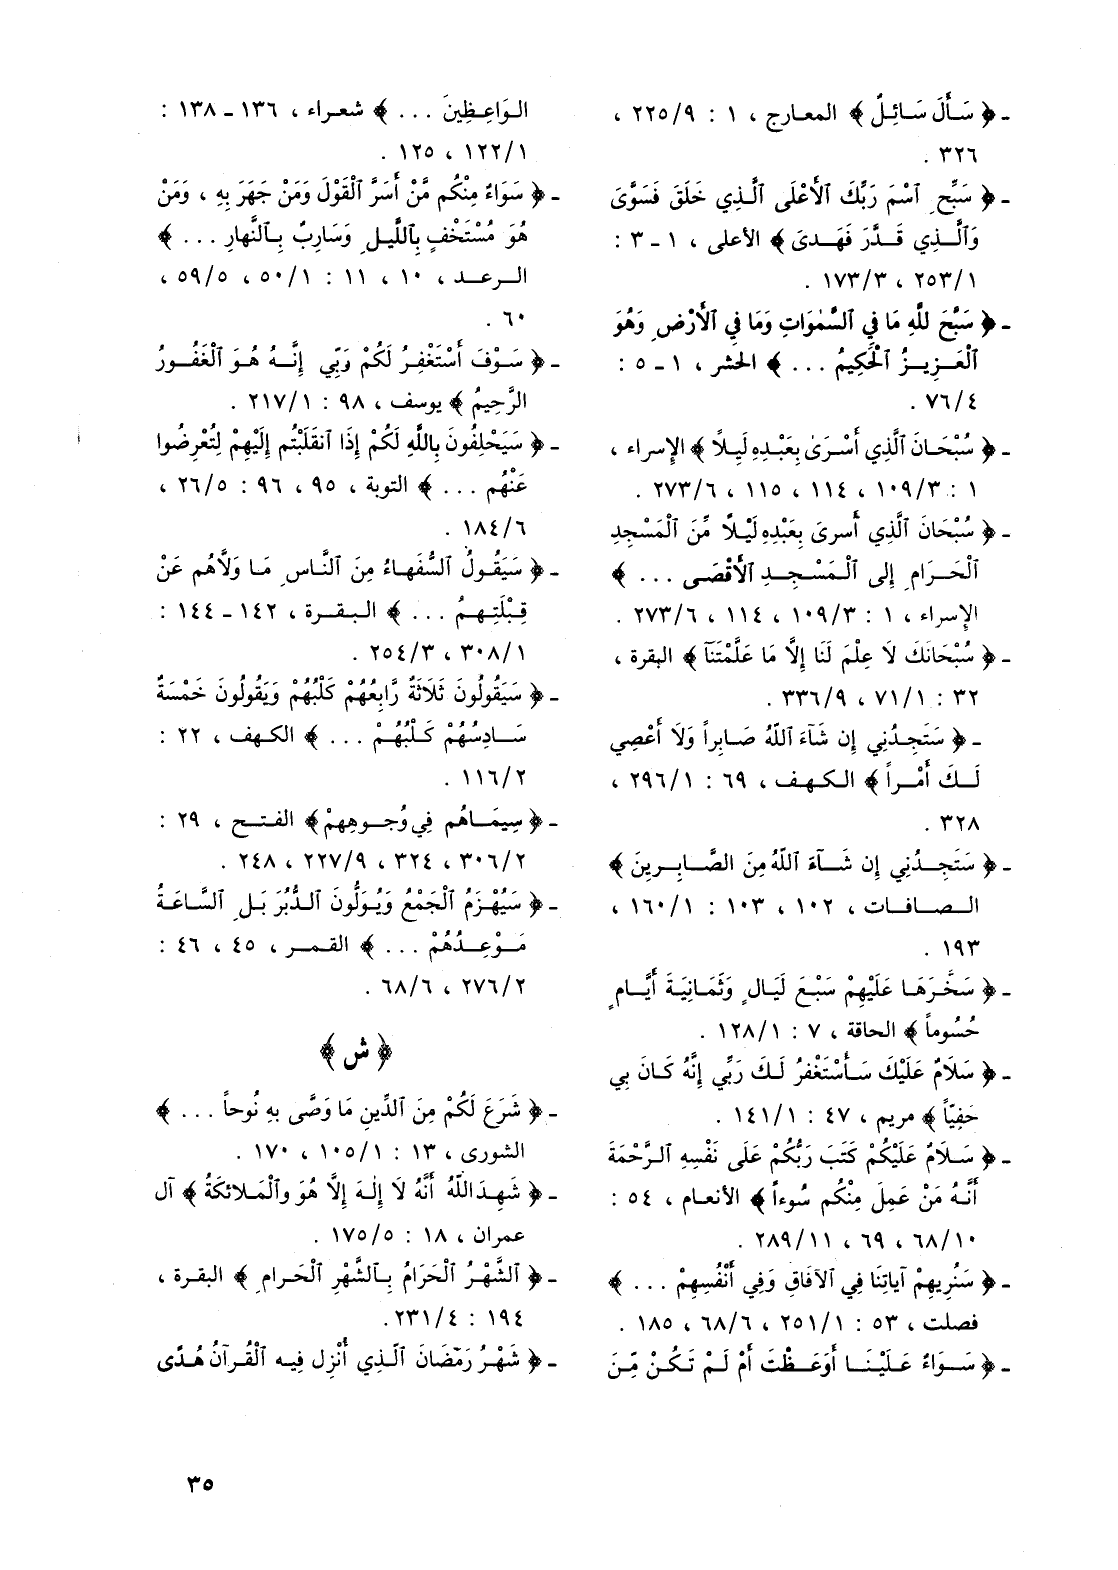 - ﴿ سَأَلَ سَائِلٌ ﴾ المعارج ، ١ : ٢٢٥/٩ ،
٣٢٦ .
- ﴿ سَبِّحِ ٱسْمَ رَبِّكَ ٱلْأَعْلَى ٱلَّذِي خَلَقَ فَسَوَّىٰ
وَٱلَّذِي قَدَّرَ فَهَدىَ ﴾ الأعلى ، ١ - ٣ :
٢٥٣/١ ، ١٧٣/٣ .
- ﴿ سَبَّحَ للَّهِ مَا فِي ٱلسَّمٰوَاتِ وَمَا فِي ٱلْأَرْضِ وَهُوَ
ٱلْعَزِيزُ ٱلْحَكِيمُ ... ﴾ الحشر ، ١ - ٥ :
٧٦/٤ .
- ﴿ سُبْحَانَ ٱلَّذِي أَسْرَىٰ بِعَبْدِهِ لَيلاً ﴾ الإسراء ،
١ : ١٠٩/٣ ، ١١٤ ، ١١٥ ، ٢٧٣/٦ .
- ﴿ سُبْحَانَ ٱلَّذِي أَسرىَ بِعَبْدِهِ لَيْلاً مِّنَ ٱلْمَسْجِدِ
ٱلْحَرَامِ إِلى ٱلْمَسْجِدِ ٱلْأَقْصَى ... ﴾
الإسراء ، ١ : ١٠٩/٣ ، ١١٤ ، ٢٧٣/٦ .
- ﴿ سُبْحَانَكَ لاَ عِلْمَ لَنَا إِلاَّ مَا عَلَّمْتَنَآ ﴾ البقرة ،
٣٢ : ٧١/١ ، ٣٣٦/٩ .
- ﴿ سَتَجِدُنِي إِن شَآءَ ٱللَّهُ صَابِراً وَلَا أَعْصِي
لَكَ أَمْراً ﴾ الكهف ، ٦٩ : ٢٩٦/١ ،
٣٢٨ .
- ﴿ سَتَجِدُنِي إِن شَآءَ ٱللَّهُ مِنَ الصَّابِرِينَ ﴾
الصافات ، ١٠٢ ، ١٠٣ : ١٦٠/١ ،
١٩٣ .
- ﴿ سَخَّرَهَا عَلَيْهِمْ سَبْعَ لَيَالٍ وَثَمَانِيَةَ أَيَّامٍ
حُسُوماً ﴾ الحاقة ، ٧ : ١٢٨/١ .
- ﴿ سَلَامٌ عَلَيْكَ سَأَسْتَغْفِرُ لَكَ رَبِّي إِنَّهُ كَانَ بِي
حَفِيّاً ﴾ مريم ، ٤٧ : ١٤١/١ .
- ﴿ سَلَامٌ عَلَيْكُمْ كَتَبَ رَبُّكُمْ عَلَى نَفْسِهِ الرَّحْمَةَ
أَنَّهُ مَنْ عَمِلَ مِنْكُم سُوءاً ﴾ الأنعام ، ٥٤ :
٦٨/١٠ ، ٦٩ ، ٢٨٩/١١ .
- ﴿ سَنُرِيهِمْ آيَاتِنَا فِي ٱلآفَاقِ وَفِي أَنْفُسِهِمْ ... ﴾
فصلت ، ٥٣ : ٢٥١/١ ، ٦٨/٦ ، ١٨٥ .
- ﴿ سَوَاءٌ عَلَيْنَا أَوَعَظْتَ أَمْ لَمْ تَكُنْ مِّنَ
الوَاعِظِينَ ... ﴾ شعراء ، ١٣٦ - ١٣٨ :
١٢٢/١ ، ١٢٥ .
- ﴿ سَوَاءٌ مِنْكُم مَّنْ أَسَرَّ ٱلْقَوْلَ وَمَنْ جَهَرَ بِهِ ، وَمَنْ
هُوَ مُسْتَخْفٍ بِاللَّيلِ وَسَارِبٌ بِالنَّهارِ ... ﴾
الرعد ، ١٠ ، ١١ : ٥٠/١ ، ٥٩/٥ ،
٦٠ .
- ﴿ سَوْفَ أَسْتَغْفِرُ لَكُمْ رَبِّي إِنَّهُ هُوَ ٱلْغَفُورُ
الرَّحِيمُ ﴾ يوسف ، ٩٨ : ٢١٧/١ .
- ﴿ سَيَحْلِفُونَ بِاللَّهِ لَكُمْ إِذَا ٱنقَلَبْتُم إِلَيْهِمْ لِتُعْرِضُوا
عَنْهُم ... ﴾ التوبة ، ٩٥ ، ٩٦ : ٢٦/٥ ،
١٨٤/٦ .
- ﴿ سَيَقُولُ ٱلسُّفَهاءُ مِنَ ٱلنَّاسِ مَا وَلاَّهُم عَنْ
قِبْلَتِهِمُ ... ﴾ البقرة ، ١٤٢ - ١٤٤ :
٣٠٨/١ ، ٢٥٤/٣ .
- ﴿ سَيَقُولُونَ ثَلَاثَةٌ رَّابِعُهُمْ كَلْبُهُمْ وَيَقُولُونَ خَمْسَةٌ
سَادِسُهُمْ كَلْبُهُمْ ... ﴾ الكهف ، ٢٢ :
١١٦/٢ .
- ﴿ سِيمَاهُم فِي وُجُوهِهِمْ ﴾ الفتح ، ٢٩ :
٣٠٦/٢ ، ٣٢٤ ، ٢٢٧/٩ ، ٢٤٨ .
- ﴿ سَيُهْزَمُ ٱلْجَمْعُ وَيُوَلُّونَ ٱلدُّبُرَ بَلِ ٱلسَّاعَةُ
مَوْعِدُهُمْ ... ﴾ القمر ، ٤٥ ، ٤٦ :
٢٧٦/٢ ، ٦٨/٦ .
﴿ ش ﴾
- ﴿ شَرَعَ لَكُمْ مِنَ ٱلدِّينِ مَا وَصَّى بِهِ نُوحاً ... ﴾
الشورى ، ١٣ : ١٠٥/١ ، ١٧٠ .
- ﴿ شَهِدَ اللَّهُ أَنَّهُ لَا إِلٰهَ إِلاَّ هُوَ وٱلْمَلائكَةُ ﴾ آل
عمران ، ١٨ : ١٧٥/٥ .
- ﴿ ٱلشَّهْرُ ٱلْحَرَامُ بِٱلشَّهْرِ ٱلْحَرامِ ﴾ البقرة ،
١٩٤ : ٢٣١/٤ .
- ﴿ شَهْرُ رَمَضَانَ ٱلَّذِي أُنْزِل فِيهِ ٱلْقُرآنُ هُدًى
٣٥